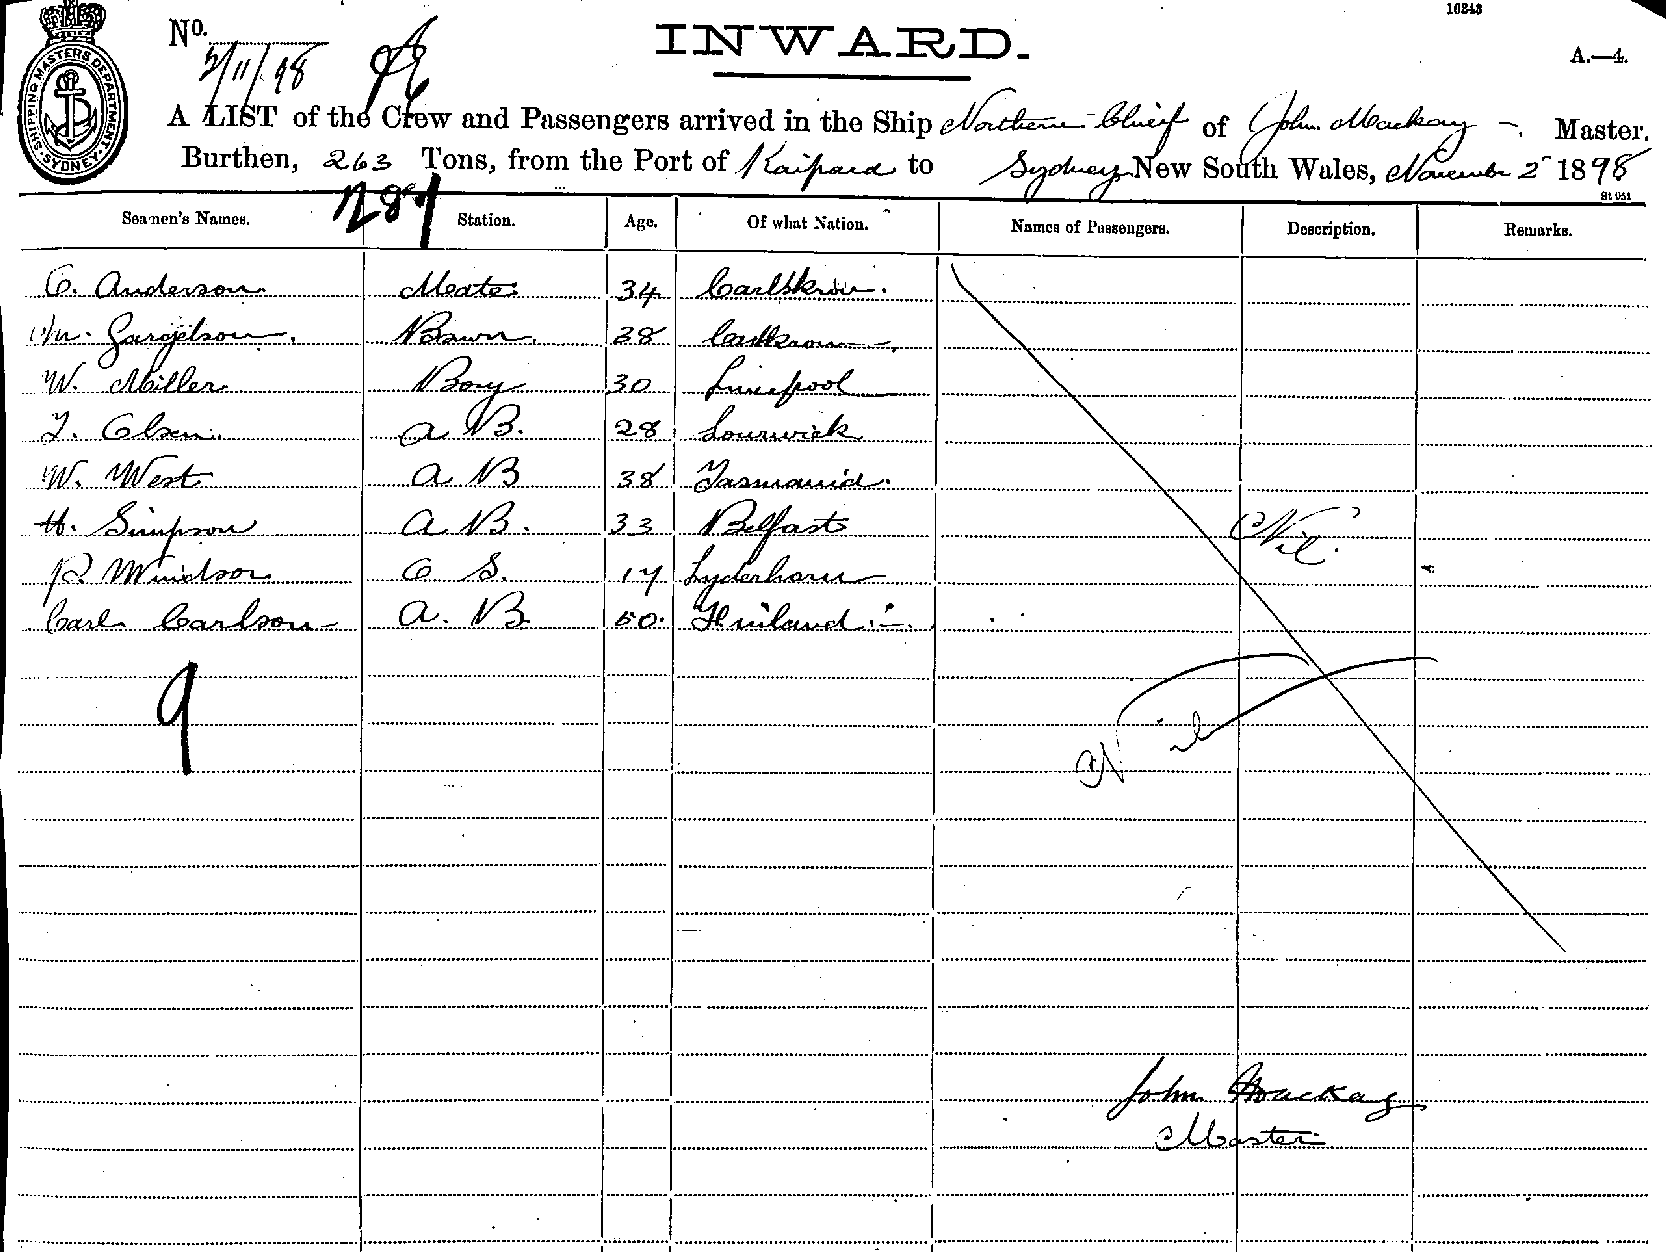 10243
No.
2/11/98
INWARD.
A.—4.
SHIPPING MASTERS DEPARTMENT. SYDNEY.
A LIST of the Crew and Passengers arrived in the Ship Northern Chief of John Mackay Master,
Burthen, 263 Tons, from the Port of Kaipara to Sydney New South Wales, November 2 1898
1284
Seamen's Names. Station. Age. Of what Nation. Names of Passengers. Description. Remarks.
C. Anderson Mate 34
38
W. Miller Boy 30 Liverpool
Olsen A B. 28
W. West A B 38 Tasmania
H. Simpson A B. 33 Belfast
R Windsor O S. 17
Carl Carlson A. B. 50 Finland
Nil.
9
Nil
John Mackay
Master